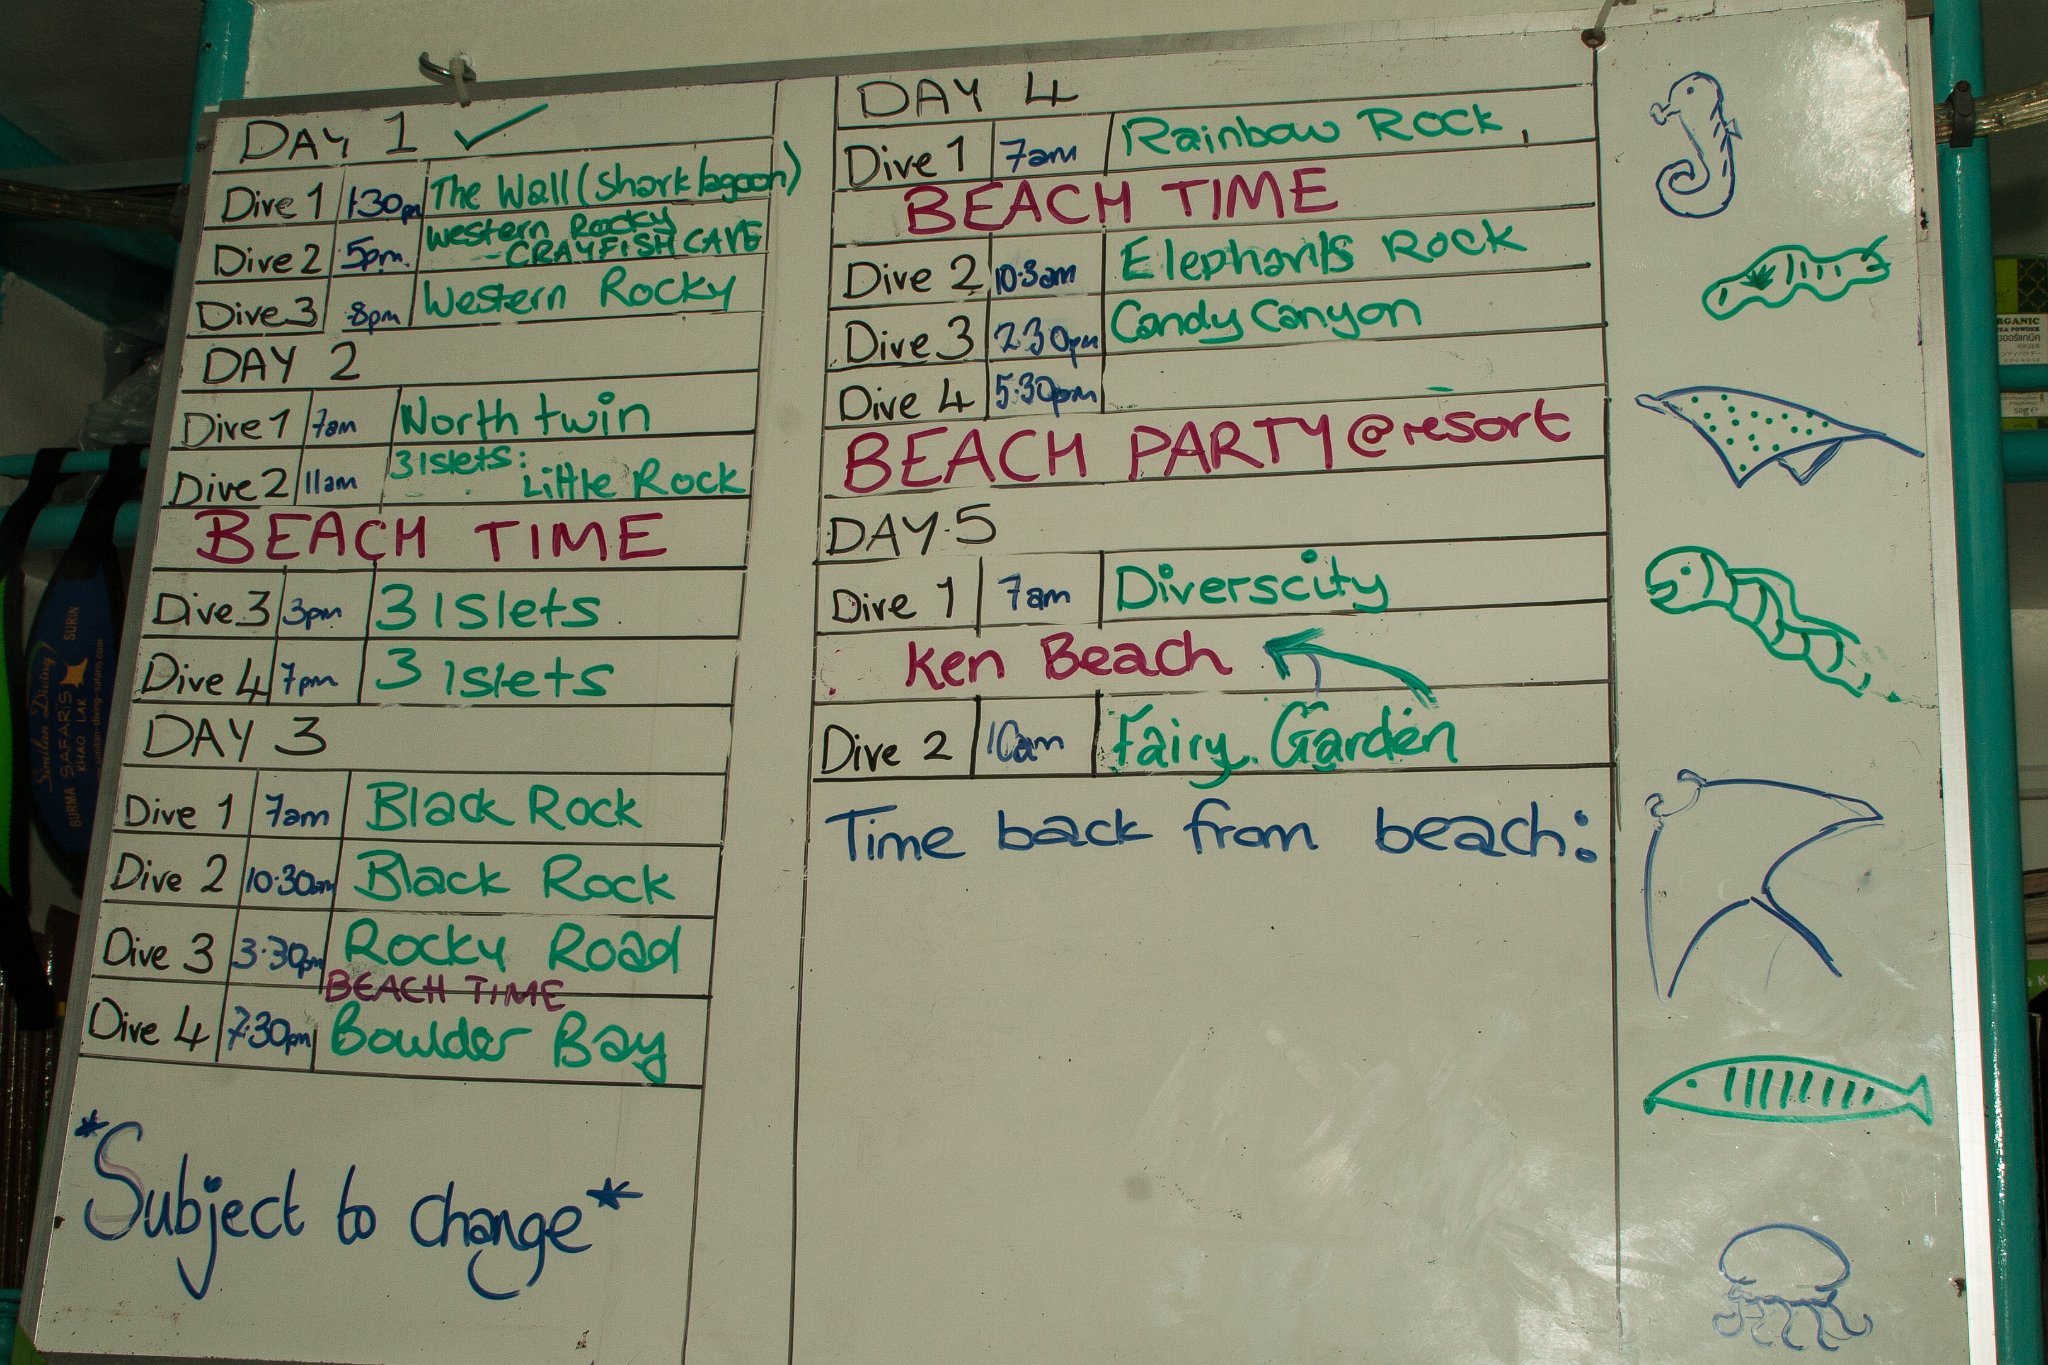 DAY 1 ✓
Dive 1 1:30pm The Wall (shark lagoon)
Dive 2 5pm. Western Rocky
- CRAYFISH CAVE
Dive 3 8pm Western Rocky
DAY 2
Dive 1 7am North twin
Dive 2 11am 3 Islets:
Little Rock
BEACH TIME
Dive 3 3pm 3 Islets
Dive 4 7pm 3 Islets
DAY 3
Dive 1 7am Black Rock
Dive 2 10:30am Black Rock
Dive 3 3:30pm Rocky Road
BEACH TIME
Dive 4 7:30pm Boulder Bay
*Subject to change*
DAY 4
Dive 1 7am Rainbow Rock,
BEACH TIME
Dive 2 10:3am Elephants Rock
Dive 3 2:30pm Candy Canyon
Dive 4 5:30pm
BEACH PARTY @ resort
DAY 5
Dive 1 7am Diverscity
Ken Beach
Dive 2 10am Fairy Garden
Time back from beach:
Similan Diving
BURMA SAFARIS SURIN
KHAO LAK